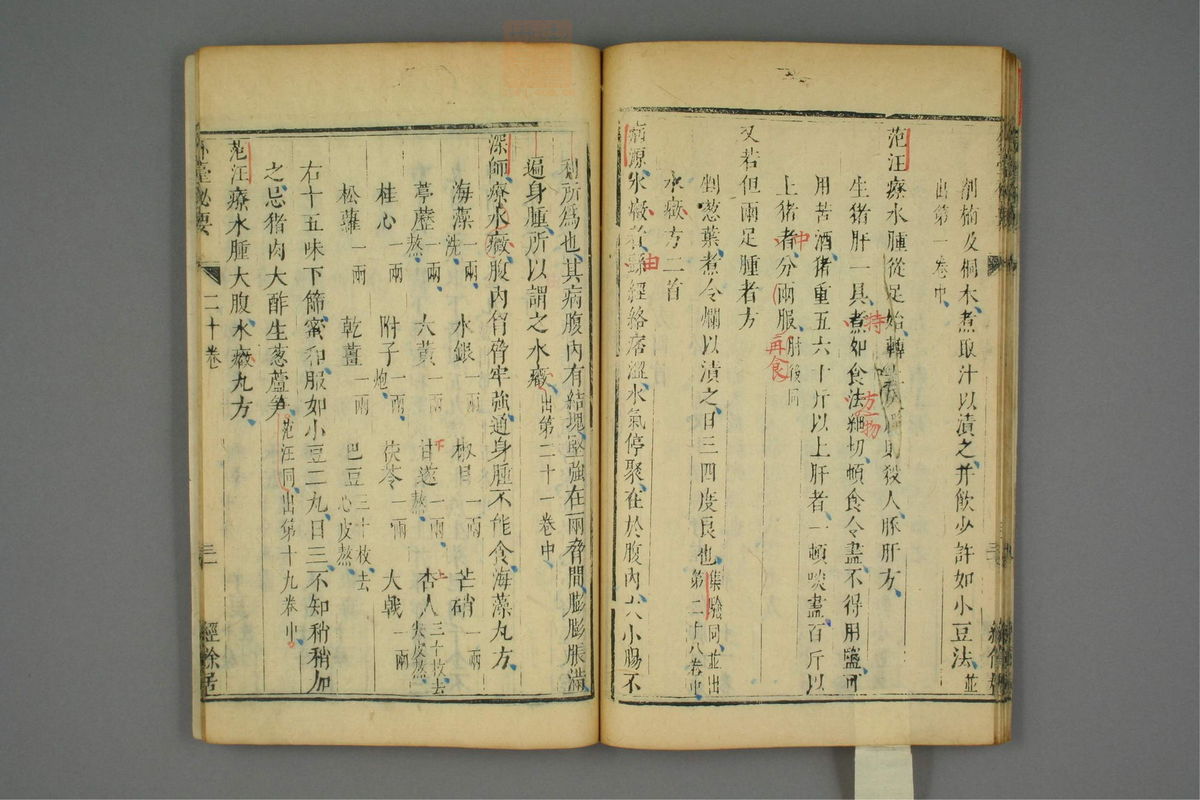 剉楠及桐木煮取汁以漬之并飲少許如小豆法並
出第一卷中
范汪療水腫從足始轉
則殺人豚肝方
生猪肝一具煮如食法細切頓食令盡不得用鹽可
用苦酒猪重五六十斤以上肝者一頓啖盡百斤以
上猪者分兩服肘後同
又若但兩足腫者方
剉葱葉煮令爛以漬之日三四度良也集驗同並出第二十八卷中
水癥方二首
病源水癥者經絡痞澀水氣停聚在於腹內大小腸不
利所為也其病腹內有結塊堅強在兩脅間膨膨脹滿
遍身腫所以謂之水癥出第二十一卷中
深師療水癥腹內胷脅牢強通身腫不能食海藻丸方
海藻一兩洗 水銀一兩 椒目一兩 芒硝一兩
葶藶一兩熬 大黃一兩 甘遂一兩熬 杏人三十枚去尖皮熬
桂心一兩 附子一兩炮 茯苓一兩 大戟一兩
松蘿一兩 乾薑一兩 巴豆三十枚去心皮熬
右十五味下篩蜜和服如小豆二丸日三不知稍稍加
之忌猪肉大酢生葱蘆笋范汪同出第十九卷中
范汪療水腫大腹水癥丸方
外臺秘要 二十卷 三 經餘居
中
由
持
方物
再食
下
上